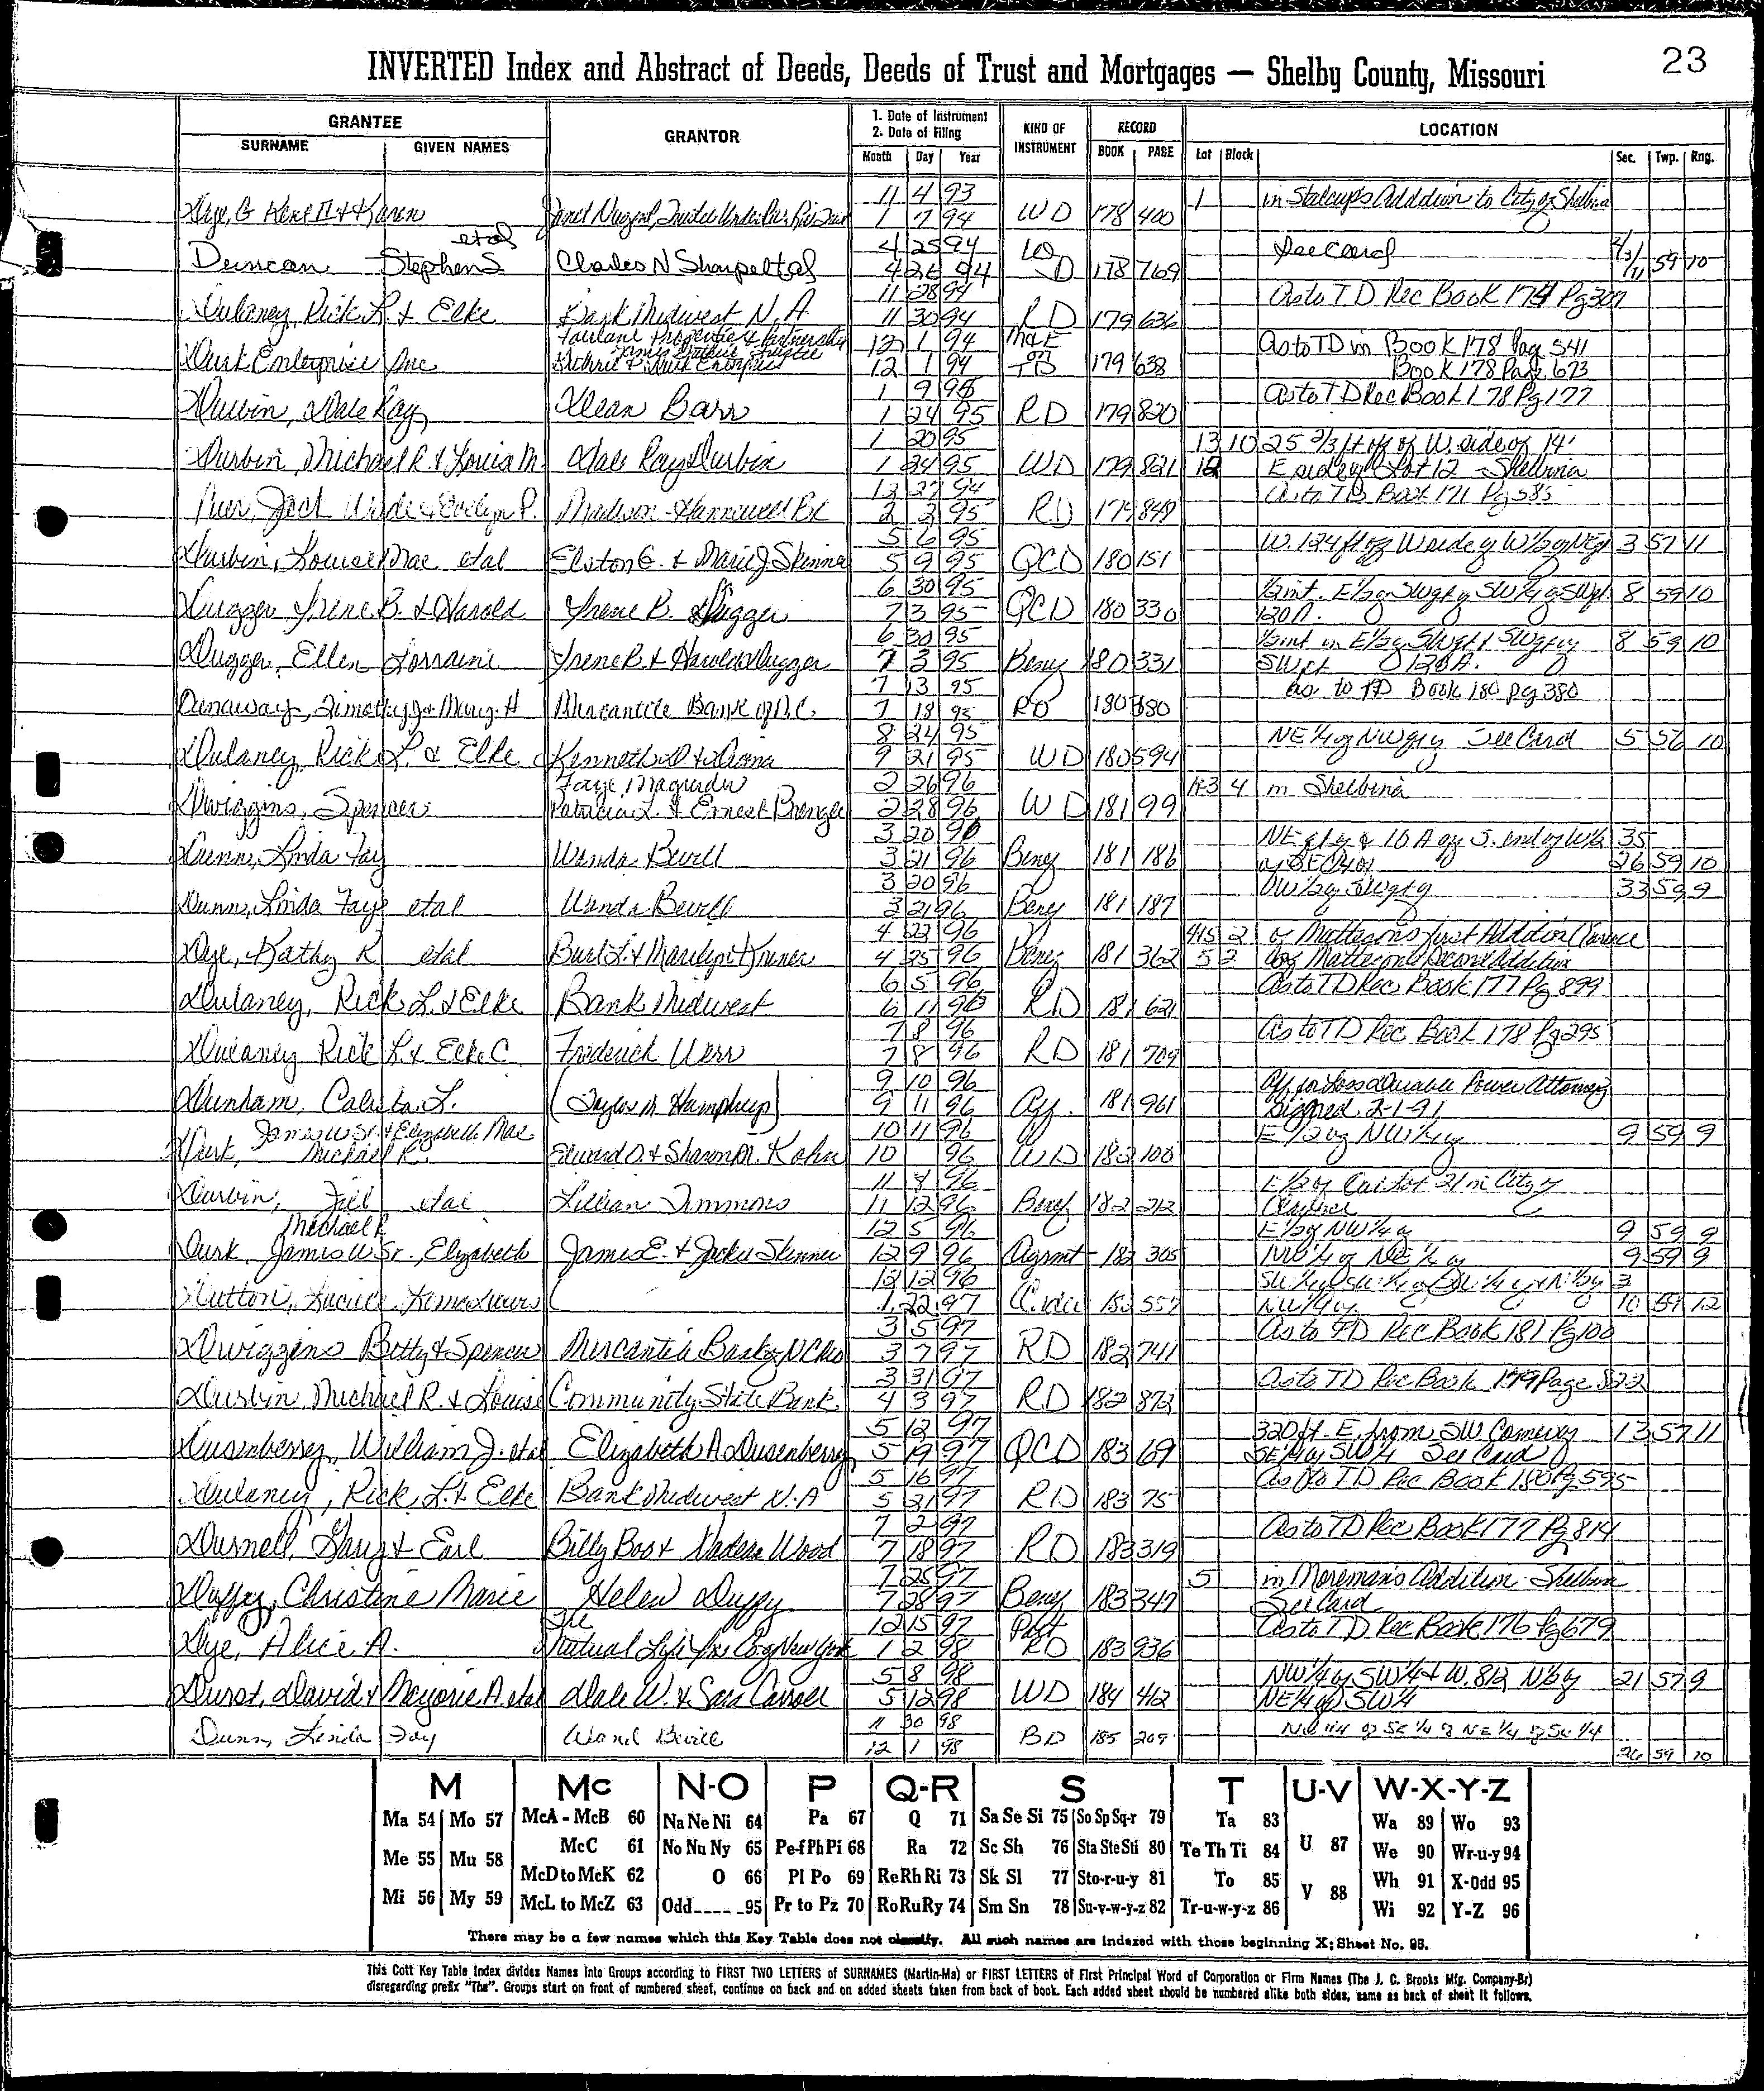 23
INVERTED Index and Abstract of Deeds, Deeds of Trust and Mortgages — Shelby County, Missouri
GRANTEE
SURNAME GIVEN NAMES
GRANTOR
1. Date of Instrument
2. Date of Filing
Month Day Year
KIND OF INSTRUMENT
RECORD
BOOK PAGE
LOCATION
Lot Block Sec. Twp. Rng.
11 4 93 1 in Stalcup's Addition to City of Shelbina
Dye, G Kent II & Karen 1 7 94 WD 178 400
etal 4 25 94 W See Card
Duncan Stephen S Charles N Sharp etal 4 26 94 D 178 769 59 10
11 28 94 As to TD Rec Book 174 Pg 307
Dulaney, Rick L. & Elke Bank Midwest N.A. 11 30 94 RD 179 636
Fairlane Properties Partnership 12 1 94 As to TD in Book 178 Pag 541
Durk Enterprise Inc 12 1 94 TD 179 638 Book 178 Page 673
1 9 95 As to TD Rec Book 178 Pg 177
Durbin, Dale Ray Dean Barr 1 24 95 RD 179 820
1 20 95 13 10 25 2/3 ft off of W. side of 14'
Durbin, Michael R. & Louis M. Dale Ray Durbin 1 24 95 WD 179 821 12 E side of Lot 12 - Shelbina
12 27 94 As to TD Book 171 Pg 585
Madison-Hunnewell Bk 2 2 95 RD 179 849
5 6 95 W. 124 ft off W side of W 1/2 of 3 57 11
Durbin, Louise Mae etal Elston G. & Marie J Skinner 5 9 95 QCD 180 151
6 30 95 8 59 10
Dugger Irene B. & Harold Irene B. Dugger 7 3 95 QCD 180 330 120 A.
6 30 95 8 59 10
Dugger, Ellen Lorraine Irene B. & Harold Dugger 7 3 95 Beny 180 331 120 A.
7 13 95 as to TD Book 180 pg 380
Dunaway, Timothy J & Mary H Mercantile Bank of N.C. 7 18 95 RD 180
8 24 95 NE 1/4 of NW 1/4 See Card 5 56 10
Dulaney Rick L. & Elke Kenneth D & Diana 9 21 95 WD 180 594
Faye Magruder 2 26 96 4 in Shelbina
Dwiggins, Spencer Patricia L. & Ernest 2 28 96 WD 181 99
3 20 96 NE & 10 A off S. end of W 1/2 35
Dunn, Linda Fay Wanda Bevill 3 21 96 Beny 181 186 26 59 10
3 20 96 33 59 9
Dunn, Linda Faye etal Wanda Bevill 3 21 96 Beny 181 187
4 23 96 4&5 2 of First Addition Clarence
Dye, Kathy K etal Burl L. & Marilyn 4 25 96 Beny 181 362 5 2 Second Addition
6 5 96 As to TD Rec Book 177 Pg 899
Dulaney, Rick L. & Elke Bank Midwest 6 11 96 RD 181 621
7 8 96 As to TD Rec Book 178 Pg 295
Dulaney Rick L. & Elke C. Frederick Werr 7 8 96 RD 181 709
9 10 96 Durable Power Attorney
Dunham, Calista L. (Taylor M Humphrey) 9 11 96 Aff. 181 961 Signed 2-1-91
James W Sr. & Elizabeth Mae 10 11 96 E 1/2 of NW 1/4 of 9 59 9
Durk, Michael R. Edward D. & Sharon M. Kohn 10 96 WD 182 100
11 8 96 E 1/2 of Outlot 21 in City of
Durbin, Jill etal Lillian Timmons 11 12 96 Beny 182 212 Clarence
Michael R 12 5 96 E 1/2 of NW 1/4 of 9 59 9
Durk James W Sr., Elizabeth James E. & Jackie Skinner 12 9 96 Agrmt 182 305 NW 1/4 of NE 1/4 of 9 59 9
12 12 96 3
1 22 97 NW 1/4 of 10 12
3 5 97 As to TD Rec Book 181 Pg 100
Dwiggins Betty & Spencer Mercantile Bank of NC Mo 3 7 97 RD 182 741
3 31 97 As to TD Rec Book 179 Page 822
Durbin Michael R. & Louise Community State Bank 4 3 97 RD 182 872
5 12 97 320 ft. E from SW Corner of 13 57 11
Dusenberry, William J. etal Elizabeth A Dusenberry 5 19 97 QCD 183 69 SE 1/4 of SW 1/4 See Card
5 16 97 As to TD Rec Book 180 Pg 595
Dulaney, Rick L. & Elke Bank Midwest N.A 5 21 97 RD 183 75
7 2 97 As to TD Rec Book 177 Pg 814
Durnell, Gary & Earl Billy Bos & Nadean Wood 7 18 97 RD 183 319
7 25 97 5 in Moreman's Addition Shelbina
Duffy, Christine Marie Helen Duffy 7 28 97 Beny 183 347 See Card
The 12 15 97 As to TD Rec Book 176 Pg 679
Dye, Alice A. Mutual Life Ins Co of New York 1 2 98 RD 183 936
5 8 98 NW 1/4 of SW 1/4 & W. 812 N 1/2 of 21 57 9
Durst, David & Marjorie A etal Dale W. & Sara Carroll 5 12 98 WD 184 412 NE 1/4 of SW 1/4
11 30 98 NW 1/4 of SE 1/4 & NE 1/4 of SE 1/4
Dunn, Linda Fay Wand Bevill 12 1 98 BD 185 209 26 59 10
M Mc N-O P Q-R S T U-V W-X-Y-Z
Ma 54 Mo 57 McA - McB 60 Na Ne Ni 64 Pa 67 Q 71 Sa Se Si 75 So Sp Sq-r 79 Ta 83 Wa 89 Wo 93
Me 55 Mu 58 McC 61 No Nu Ny 65 Pe-f Ph Pi 68 Ra 72 Sc Sh 76 Sta Ste Sti 80 Te Th Ti 84 U 87 We 90 Wr-u-y 94
McD to McK 62 O 66 Pl Po 69 Re Rh Ri 73 Sk Sl 77 Sto-r-u-y 81 To 85 Wh 91 X-Odd 95
Mi 56 My 59 McL to McZ 63 Odd 95 Pr to Pz 70 Ro Ru Ry 74 Sm Sn 78 Su-v-w-y-z 82 Tr-u-w-y-z 86 V 88 Wi 92 Y-Z 96
There may be a few names which this Key Table does not classify. All such names are indexed with those beginning X; Sheet No. 95.
This Cott Key Table Index divides Names into Groups according to FIRST TWO LETTERS of SURNAMES (Martin-Ma) or FIRST LETTERS of First Principal Word of Corporation or Firm Names (The J. C. Brooks Mfg. Company-Br)
disregarding prefix "The". Groups start on front of numbered sheet, continue on back and on added sheets taken from back of book. Each added sheet should be numbered alike both sides, same as back of sheet it follows.